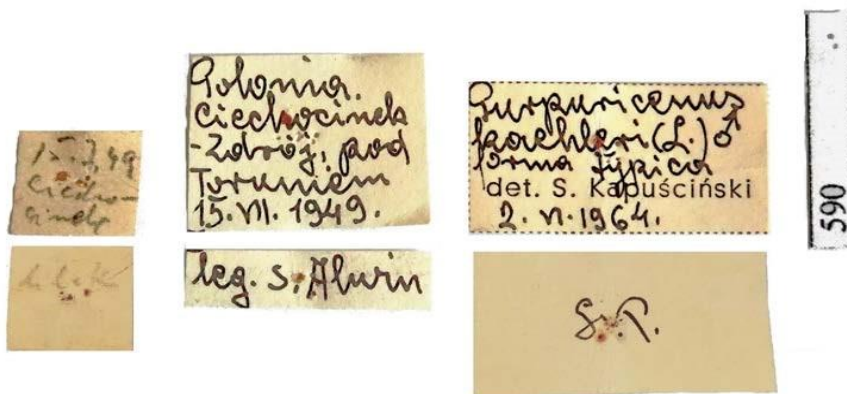 15.7.49
Ciecho-
cinek
Polonia.
Ciechocinek
-Zdrój, pod
Toruniem
15.VII.1949.
leg. S. Alwin
Purpuricenus
kaehleri (L.) ♂
forma typica
det. S. Kapuściński
2.VI.1964.
590